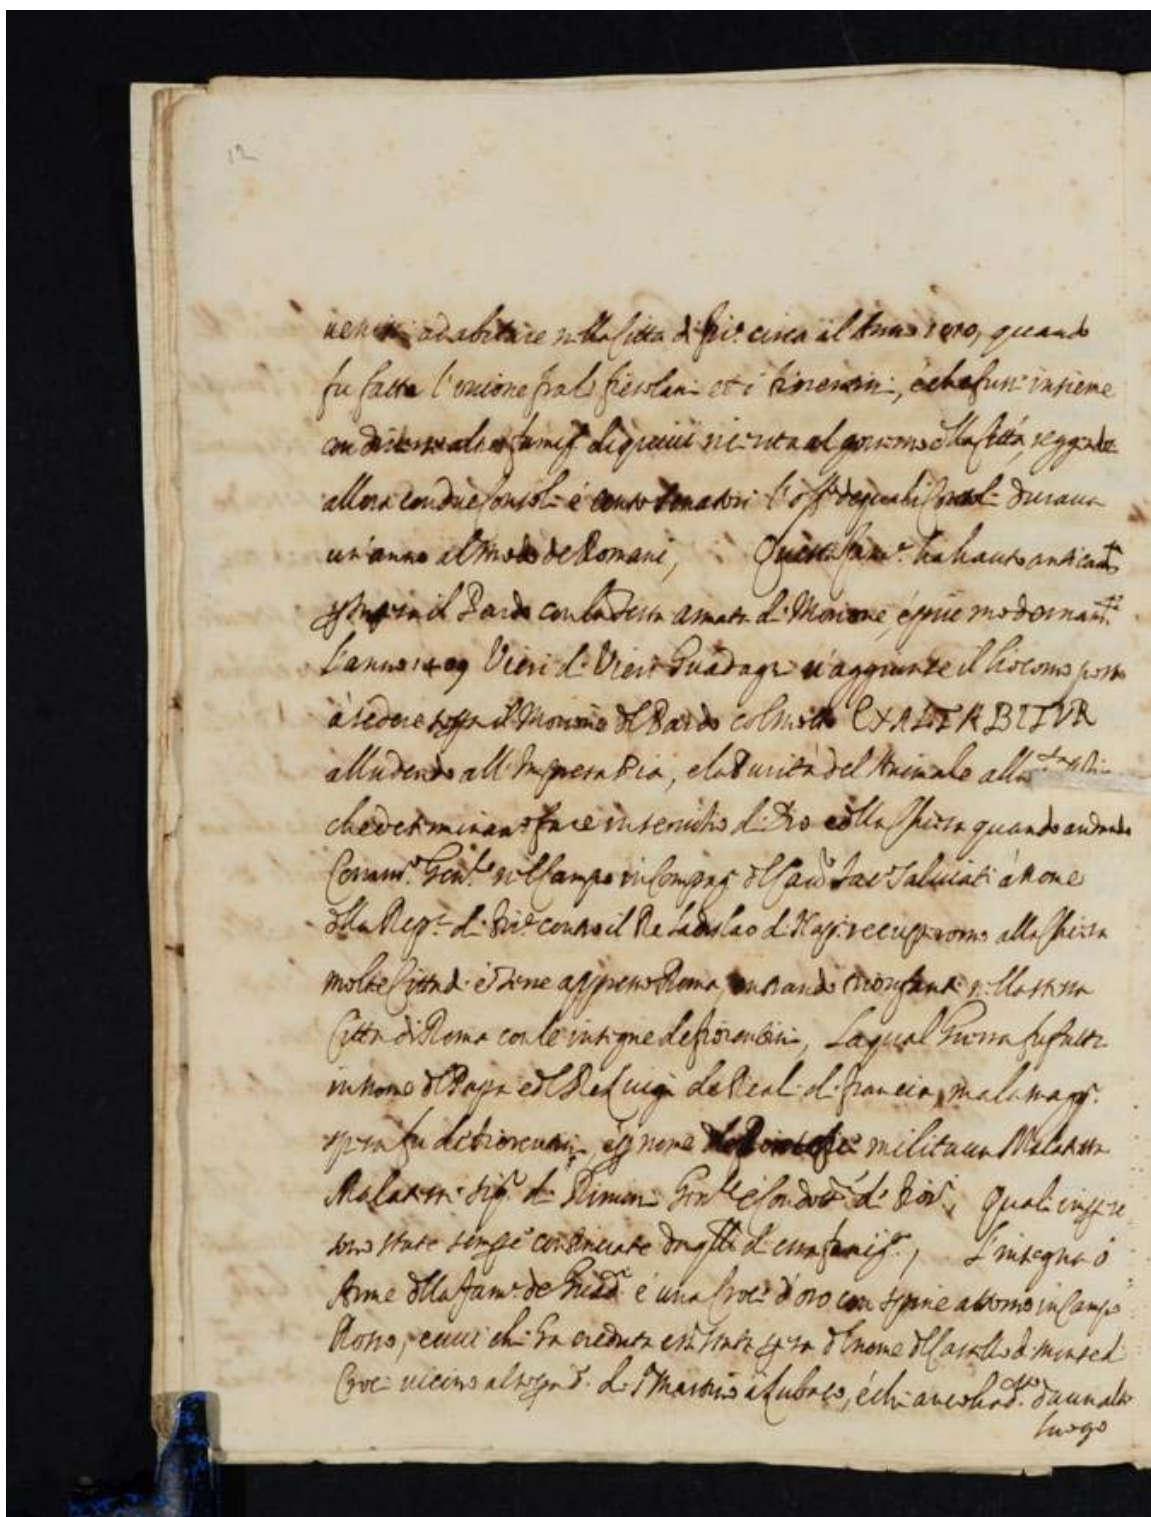 12
ad abitare nella Citta di Fir.e circa al Anno 1010, quando
fu fatta l'unione fra li Fiesolani et i Fiorentini, e che furn: insieme
con diverse altre famig: di quivi ricevuta al governo della Città, reggende
allora con due Consoli e cento Senatori l'off.o de quali Consol: durava
un'anno al modo de Romani, Questa fam.a ha hauto anticam.te
il Pardo con la testa armata di Morione, e più modernam.te
l'anno 1409 Vieri di Vieri Guadagi v'aggiunse il Liocorno posto
à sedere sopra il Morione del Pardo col motto EXALTABITUR
alludendo all'Impresa Pia, e la Purità del Animale alla
che determinano fare in servitio di Dio e della Chiesa quando andando
Comm.o Gen.le nel Campo in Compag: del Cav: Jac: Salviati à nome
della Rep: di Fir.e contro il Re Ladislao di Nap: recuperorno alla Chiesa
molte Città di e Terre appresso Roma, entrando trionfanti nella stessa
Citta di Roma con le insegne de fiorentini, La qual Guerra fu fatta
in nome del Papa e del Re Luigi de Reali di Francia, ma la magg:
spesa fu de fiorentini, e a nome militava Malatesta
Malatesti Sig: di Rimini Gen.le e Condott.e di Fior: Quali imprese
sono state sempre continuate dagli di essa famig.a, L'insegna ò
Arme della fam.a de Guad: è una Croce d'oro con spine attorno in Campo
Rosso, e cui chi ha creduta essere stata presa del nome del Castello di monte di
Croce vicino al di S Martino a Lubaco, e chi anco ha d.o da un altro
luogo